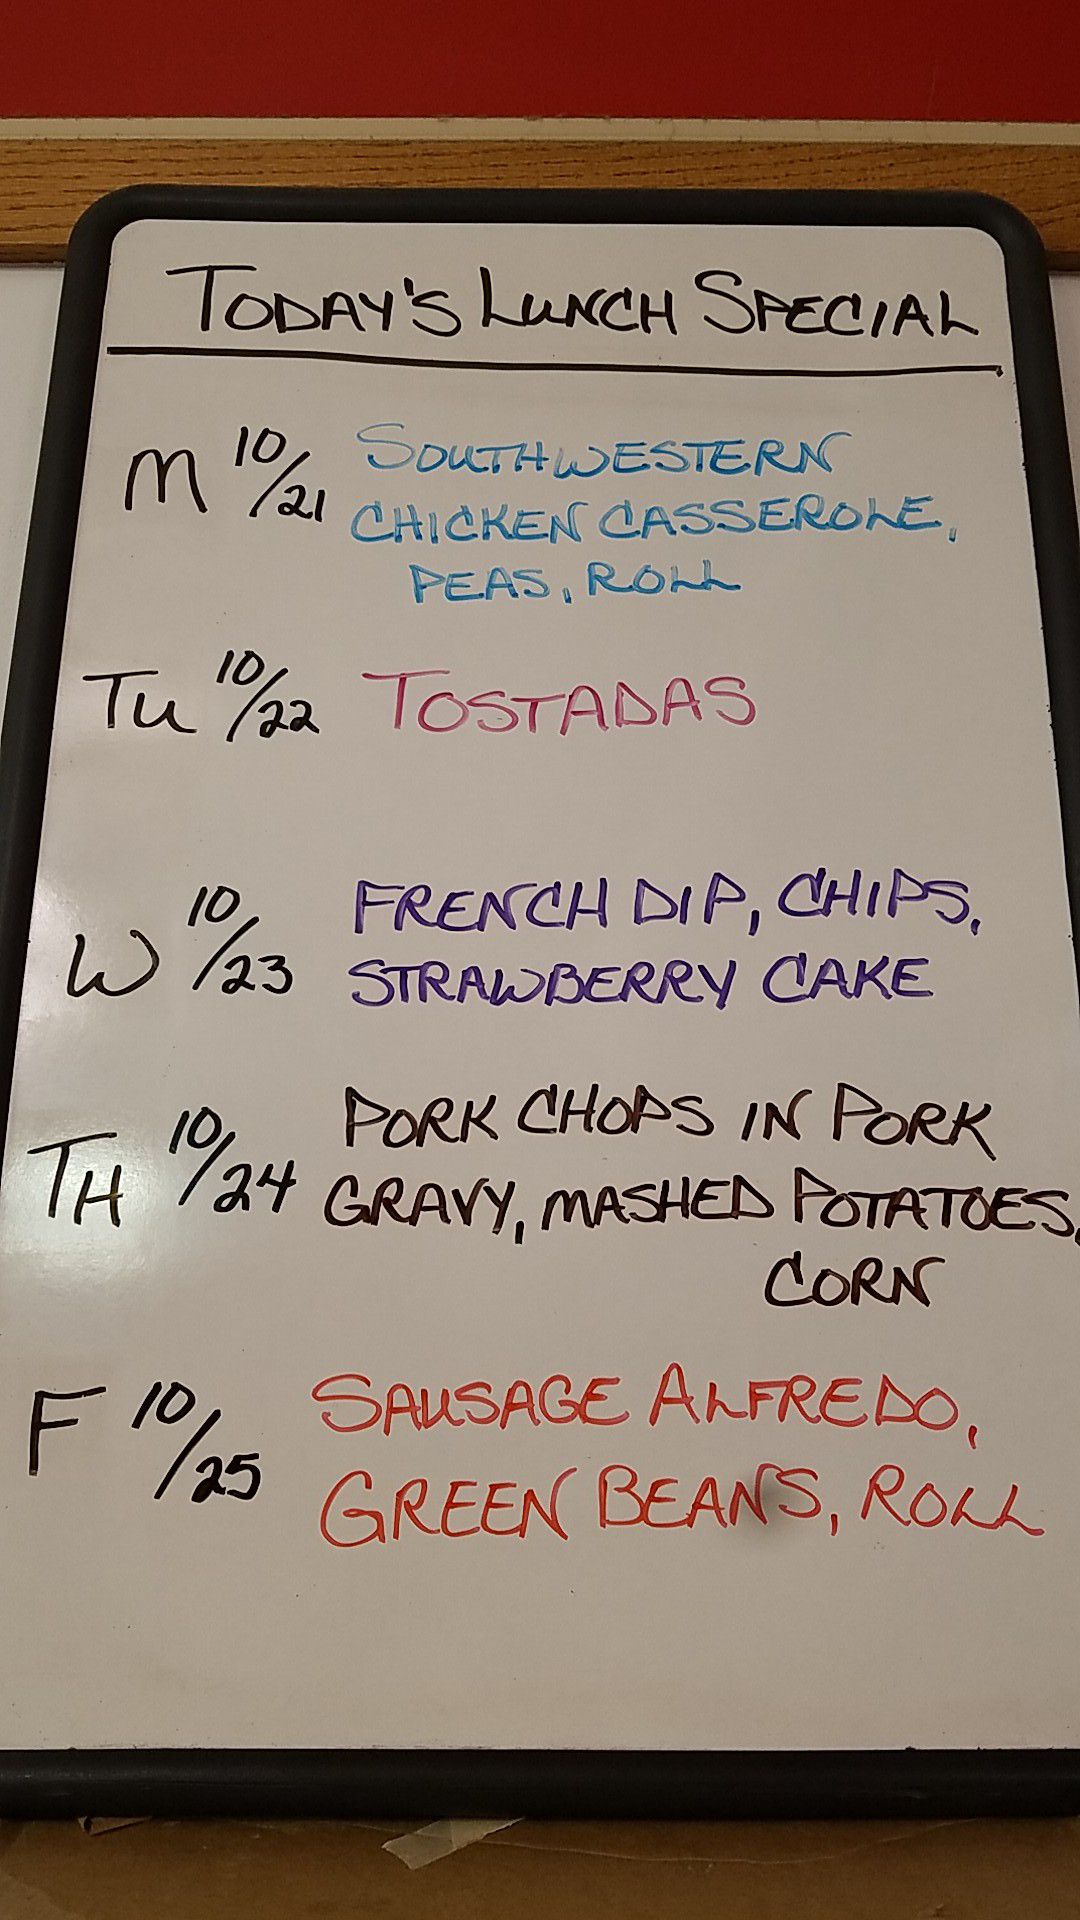 TODAY'S LUNCH SPECIAL
M 10/21 SOUTHWESTERN
CHICKEN CASSEROLE,
PEAS, ROLL
TU 10/22 TOSTADAS
W 10/23 FRENCH DIP, CHIPS,
STRAWBERRY CAKE
TH 10/24 PORK CHOPS IN PORK
GRAVY, MASHED POTATOES,
CORN
F 10/25 SAUSAGE ALFREDO,
GREEN BEANS, ROLL